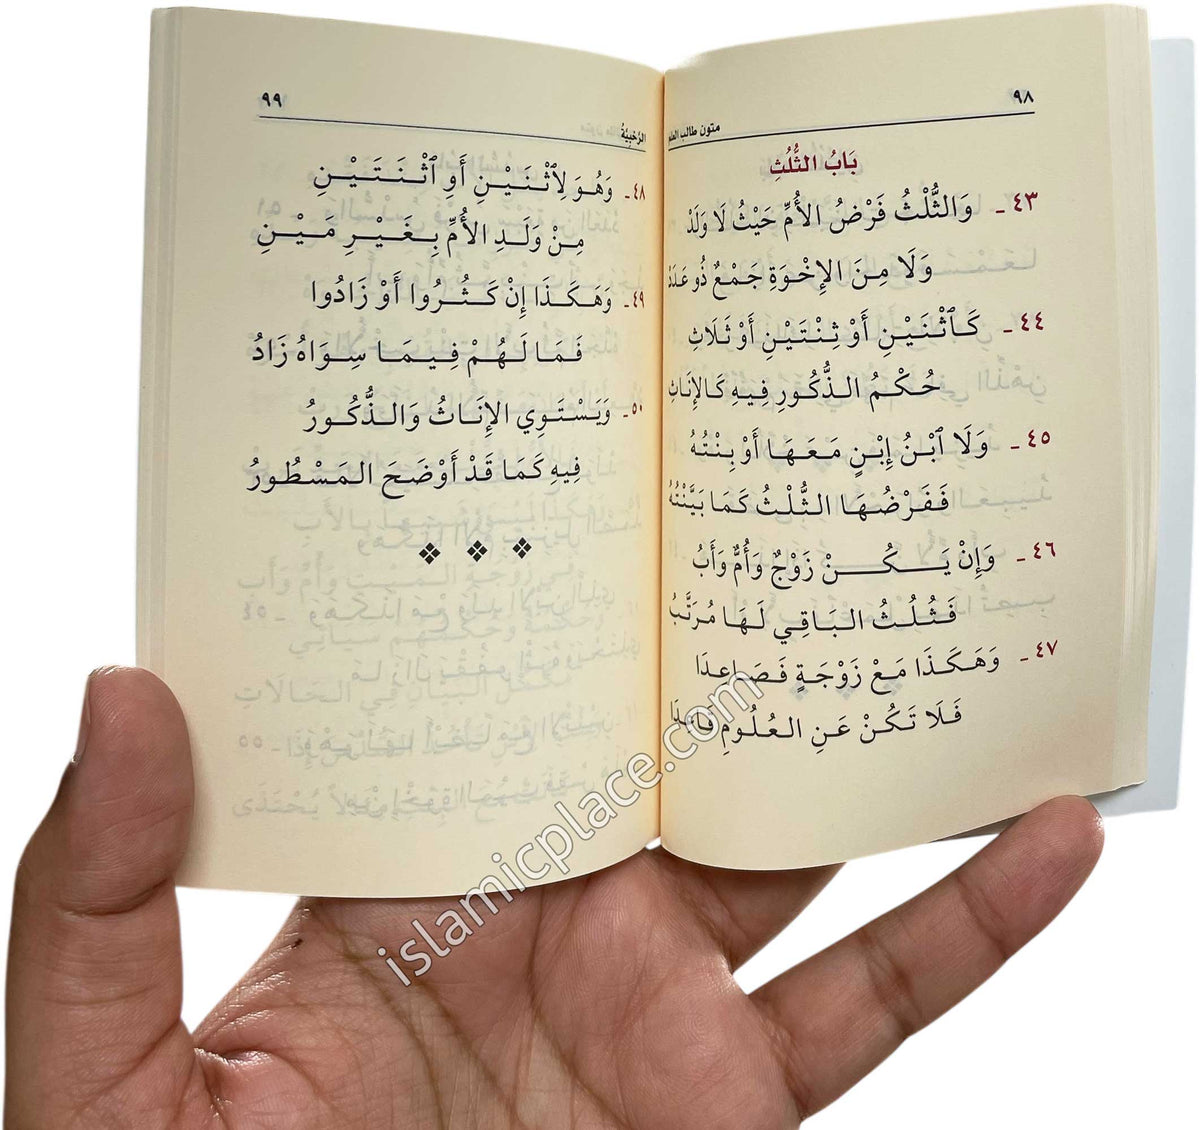 ٩٨
متون طالب العلم
بَابُ الثُّلُثِ
٤٣ - وَالثُّلْثُ فَرْضُ الأُمِّ حَيْثُ لَا وَلَدْ
وَلَا مِنَ الإِخْوَةِ جَمْعٌ ذُو عَدَدْ
٤٤ - كَاَثْنَيْنِ أَوْ ثِنْتَيْنِ أَوْ ثَلَاثِ
حُكْمُ الذُّكُورِ فِيهِ كَالإِنَاثِ
٤٥ - وَلَا ٱبْنُ إِبْنٍ مَعَهَا أَوْ بِنْتُهُ
فَفَرْضُهَا الثُّلْثُ كَمَا بَيَّنْتُهُ
٤٦ - وَإِنْ يَكُنْ زَوْجٌ وَأُمٌّ وَأَبُ
فَثُلُثُ البَاقِي لَهَا مُرَتَّبُ
٤٧ - وَهَكَذَا مَعْ زَوْجَةٍ فَصَاعِدَا
فَلَا تَكُنْ عَنِ العُلُومِ قَاعِدَا
٩٩
الرَّحَبِيَّةُ
٤٨ - وَهُوَ لِاَثْنَيْنِ أَوِ ٱثْنَتَيْنِ
مِنْ وَلَدِ الأُمِّ بِغَيْرِ مَيْنِ
٤٩ - وَهَكَذَا إِنْ كَثُرُوا أَوْ زَادُوا
فَمَا لَهُمْ فِيمَا سِوَاهُ زَادُ
٥٠ - وَيَسْتَوِي الإِنَاثُ وَالذُّكُورُ
فِيهِ كَمَا قَدْ أَوْضَحَ المَسْطُورُ
islamicplace.com